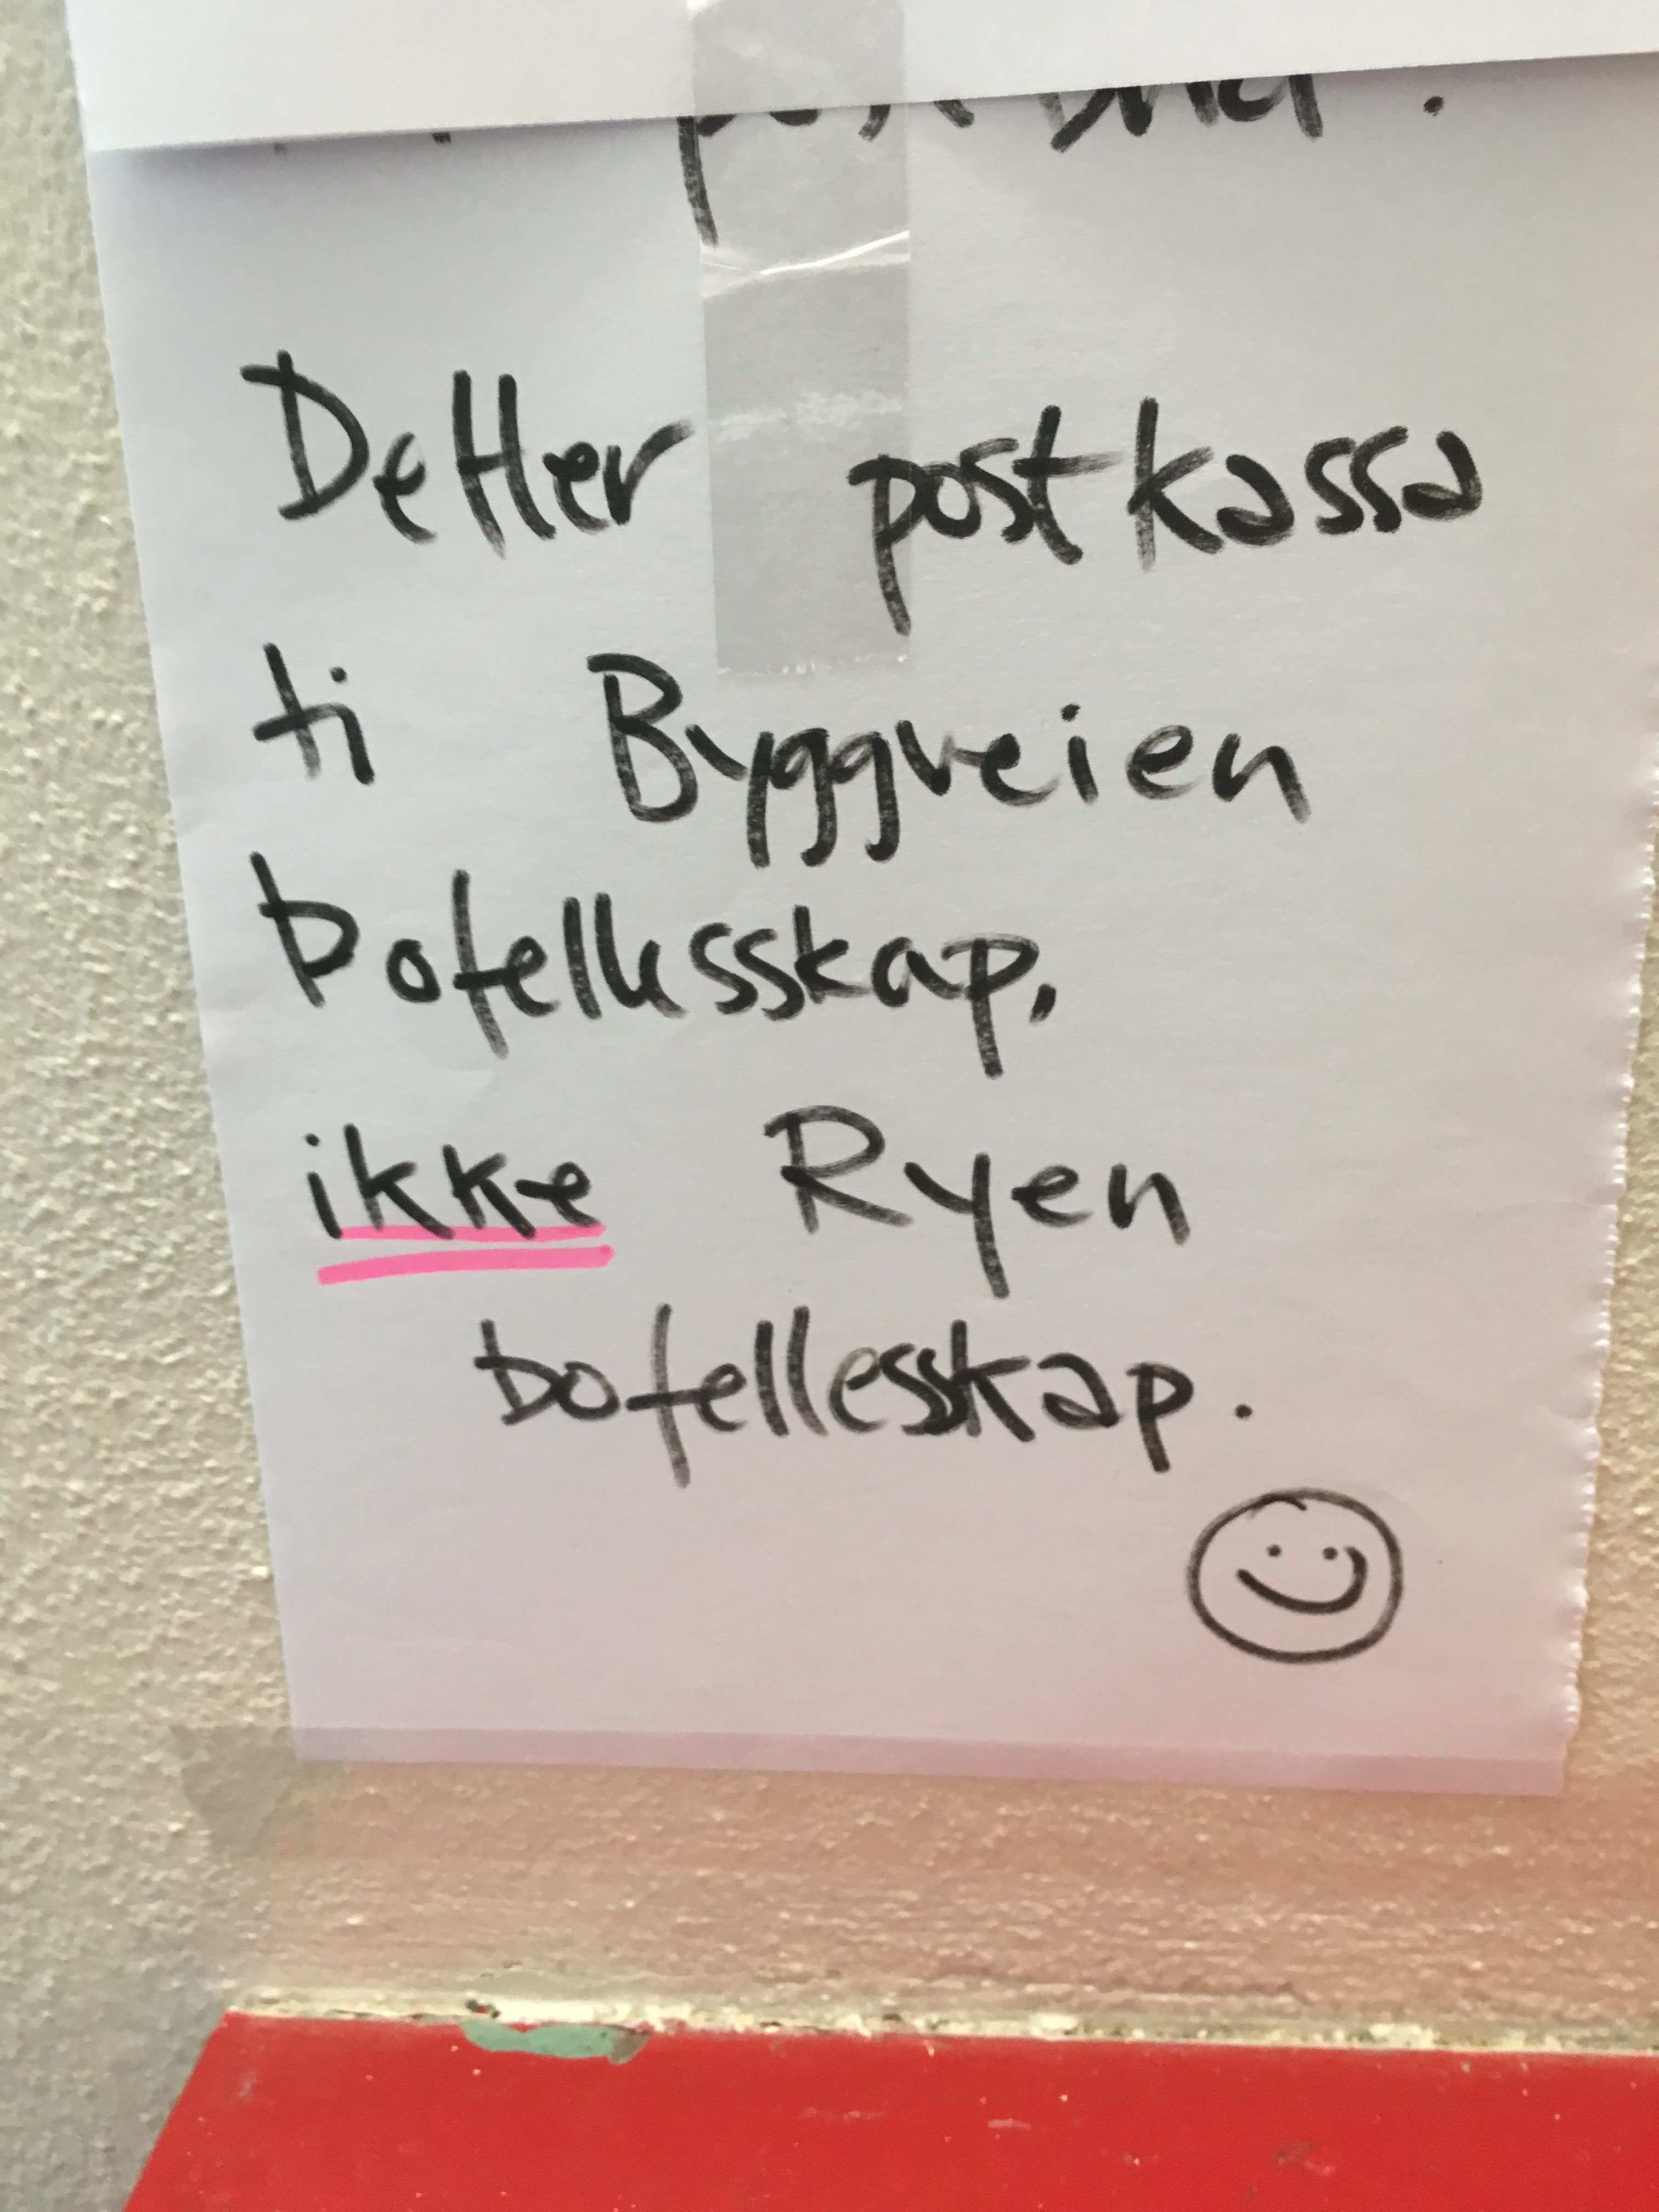 Detter postkassa
ti Byggveien
bofellesskap,
ikke Ryen
bofellesskap.